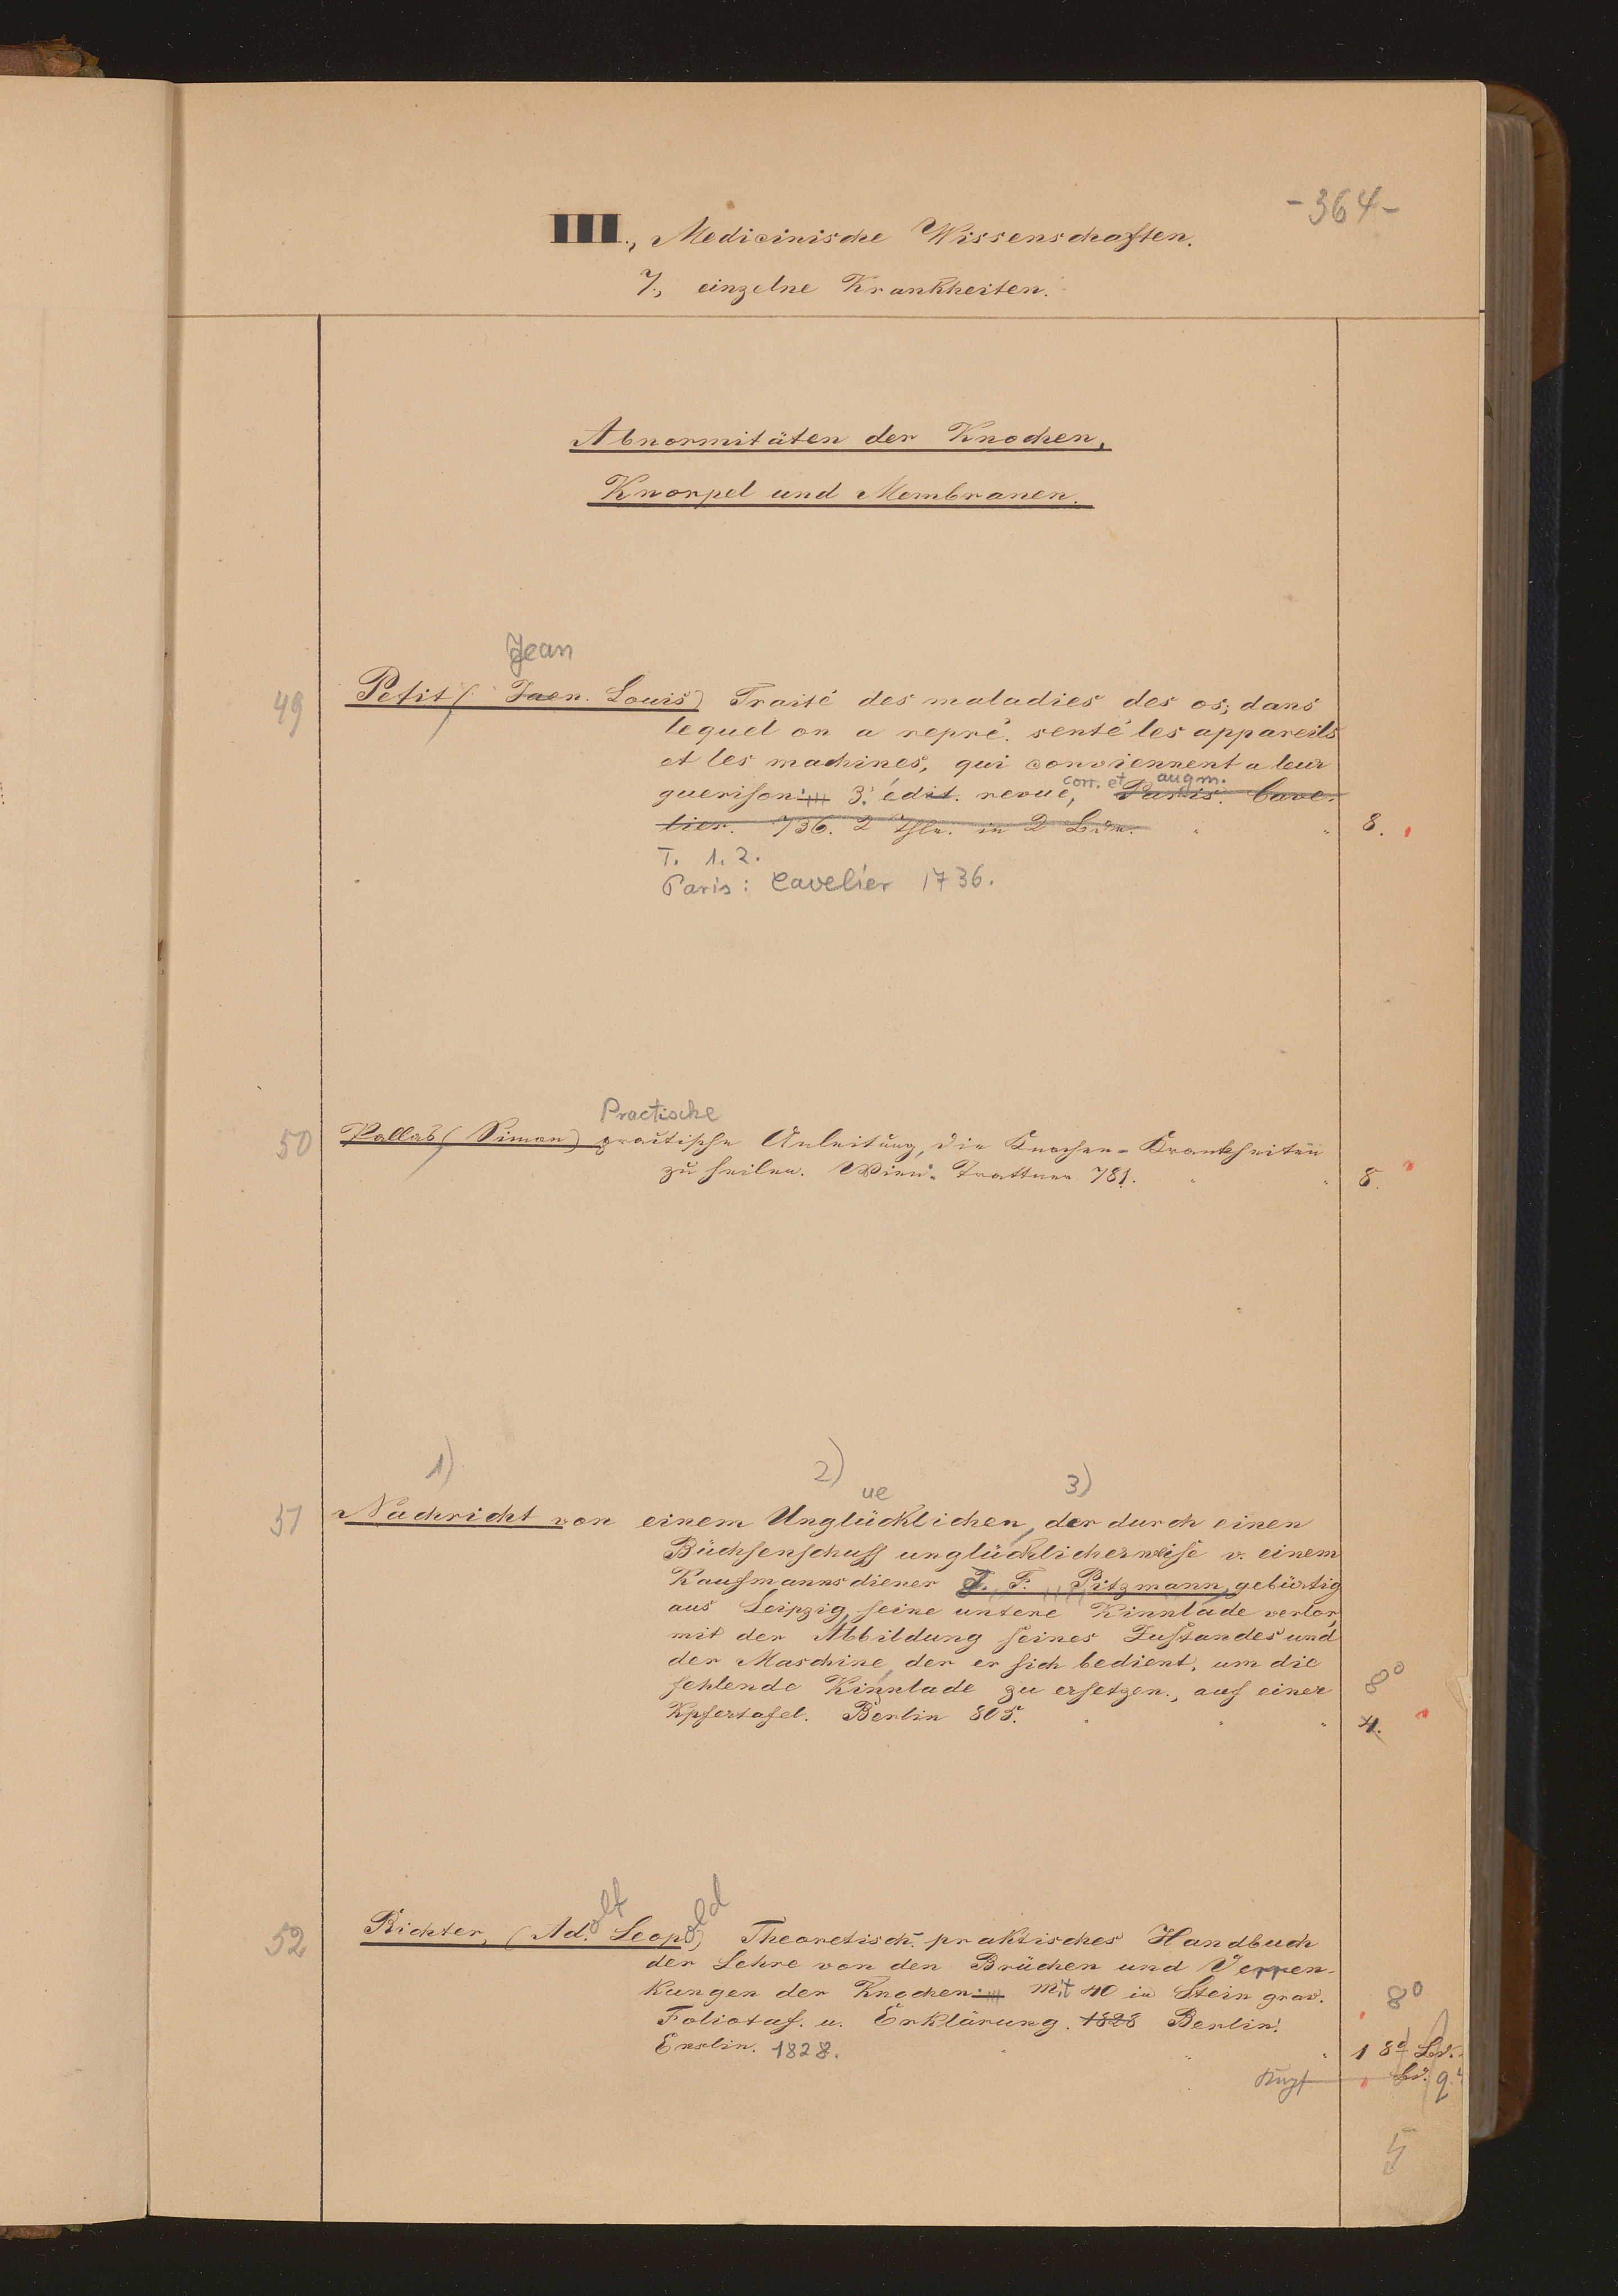 -364-
III., Medicinische Wissenschaften.
7., einzelne Krankheiten.
Abnormitäten der Knochen,
Knorpel und Membranen.
Jean
49 Petit (Jaen. Louis) Traité des maladies des os; dans
lequel on a repré. senté les appareils
et les machines, qui conviennent a leur
corr. et augm.
guerison. 3. édit. revue, Paris. Cave-
lier. 736. 2 Thle. in 2 Bdn. " " 8.
T. 1. 2.
Paris: Cavelier 1736.
Practische
50 Pallas (Simon) practische Anleitung, die Knochen-Krankheiten
zu heilen. Wien. Trattner 781. " " 8.
1) 2) 3)
ue
51 Nachricht von einem Unglücklichen, der durch einen
Büchsenschuss unglücklicherweise v. einem
Kaufmannsdiener J. F. Pitzmann, gebürtig
aus Leipzig, seine untere Kinnlade verlor,
mit der Abbildung seines Zustandes und
der Maschine, der er sich bedient, um die
fehlende Kinnlade zu ersetzen., auf einer 8°
Kpfertafel. Berlin 805. " " " 4.
olf old
52 Richter, (Ad. Leop.) Theoretisch-praktisches Handbuch
der Lehre von den Brüchen und Verren-
kungen der Knochen. Mit 40 in Stein grav. 8°
Foliotaf. u. Erklärung. 1828 Berlin.
Enslin. 1828. " " " 1 8° Bd.
Bd.
5